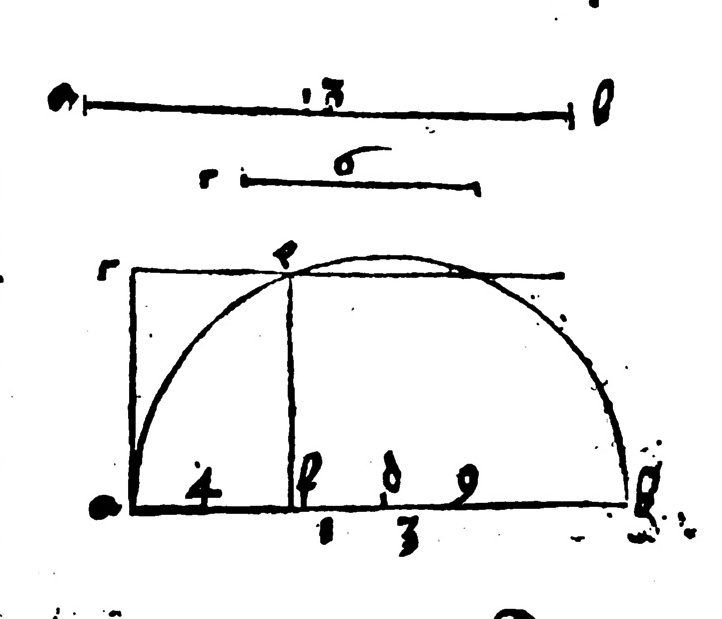 a 13 b
r 6
r e
a 4 f d 9 b
1 3